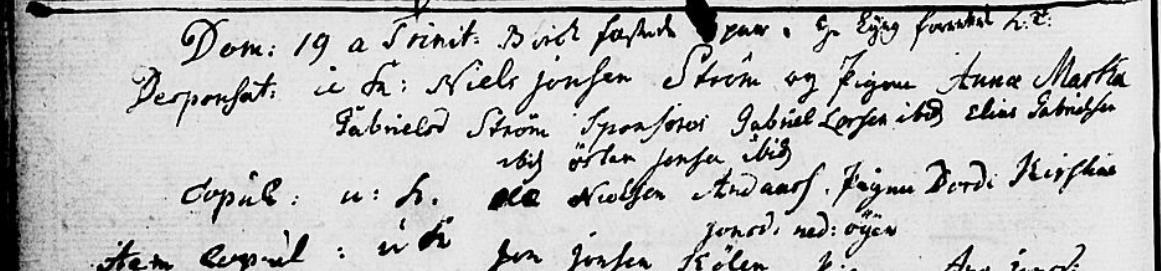 Dom: 19 a Trinit:
Desponsat: u: K: Niels Jonsen Ström og Pigen Anna Martha
Gabrielsd Ström Sponsores Gabriel Larsen ibid Elias Gabrielsen
ibid Östen Jonsen ibid
Copul: u: K. Ole Nielsen Pigen Dordi Kirstine
Jonsd: ned: öyen
item Copul: u K Jon Jonsen Kölen Ane Jonsd: